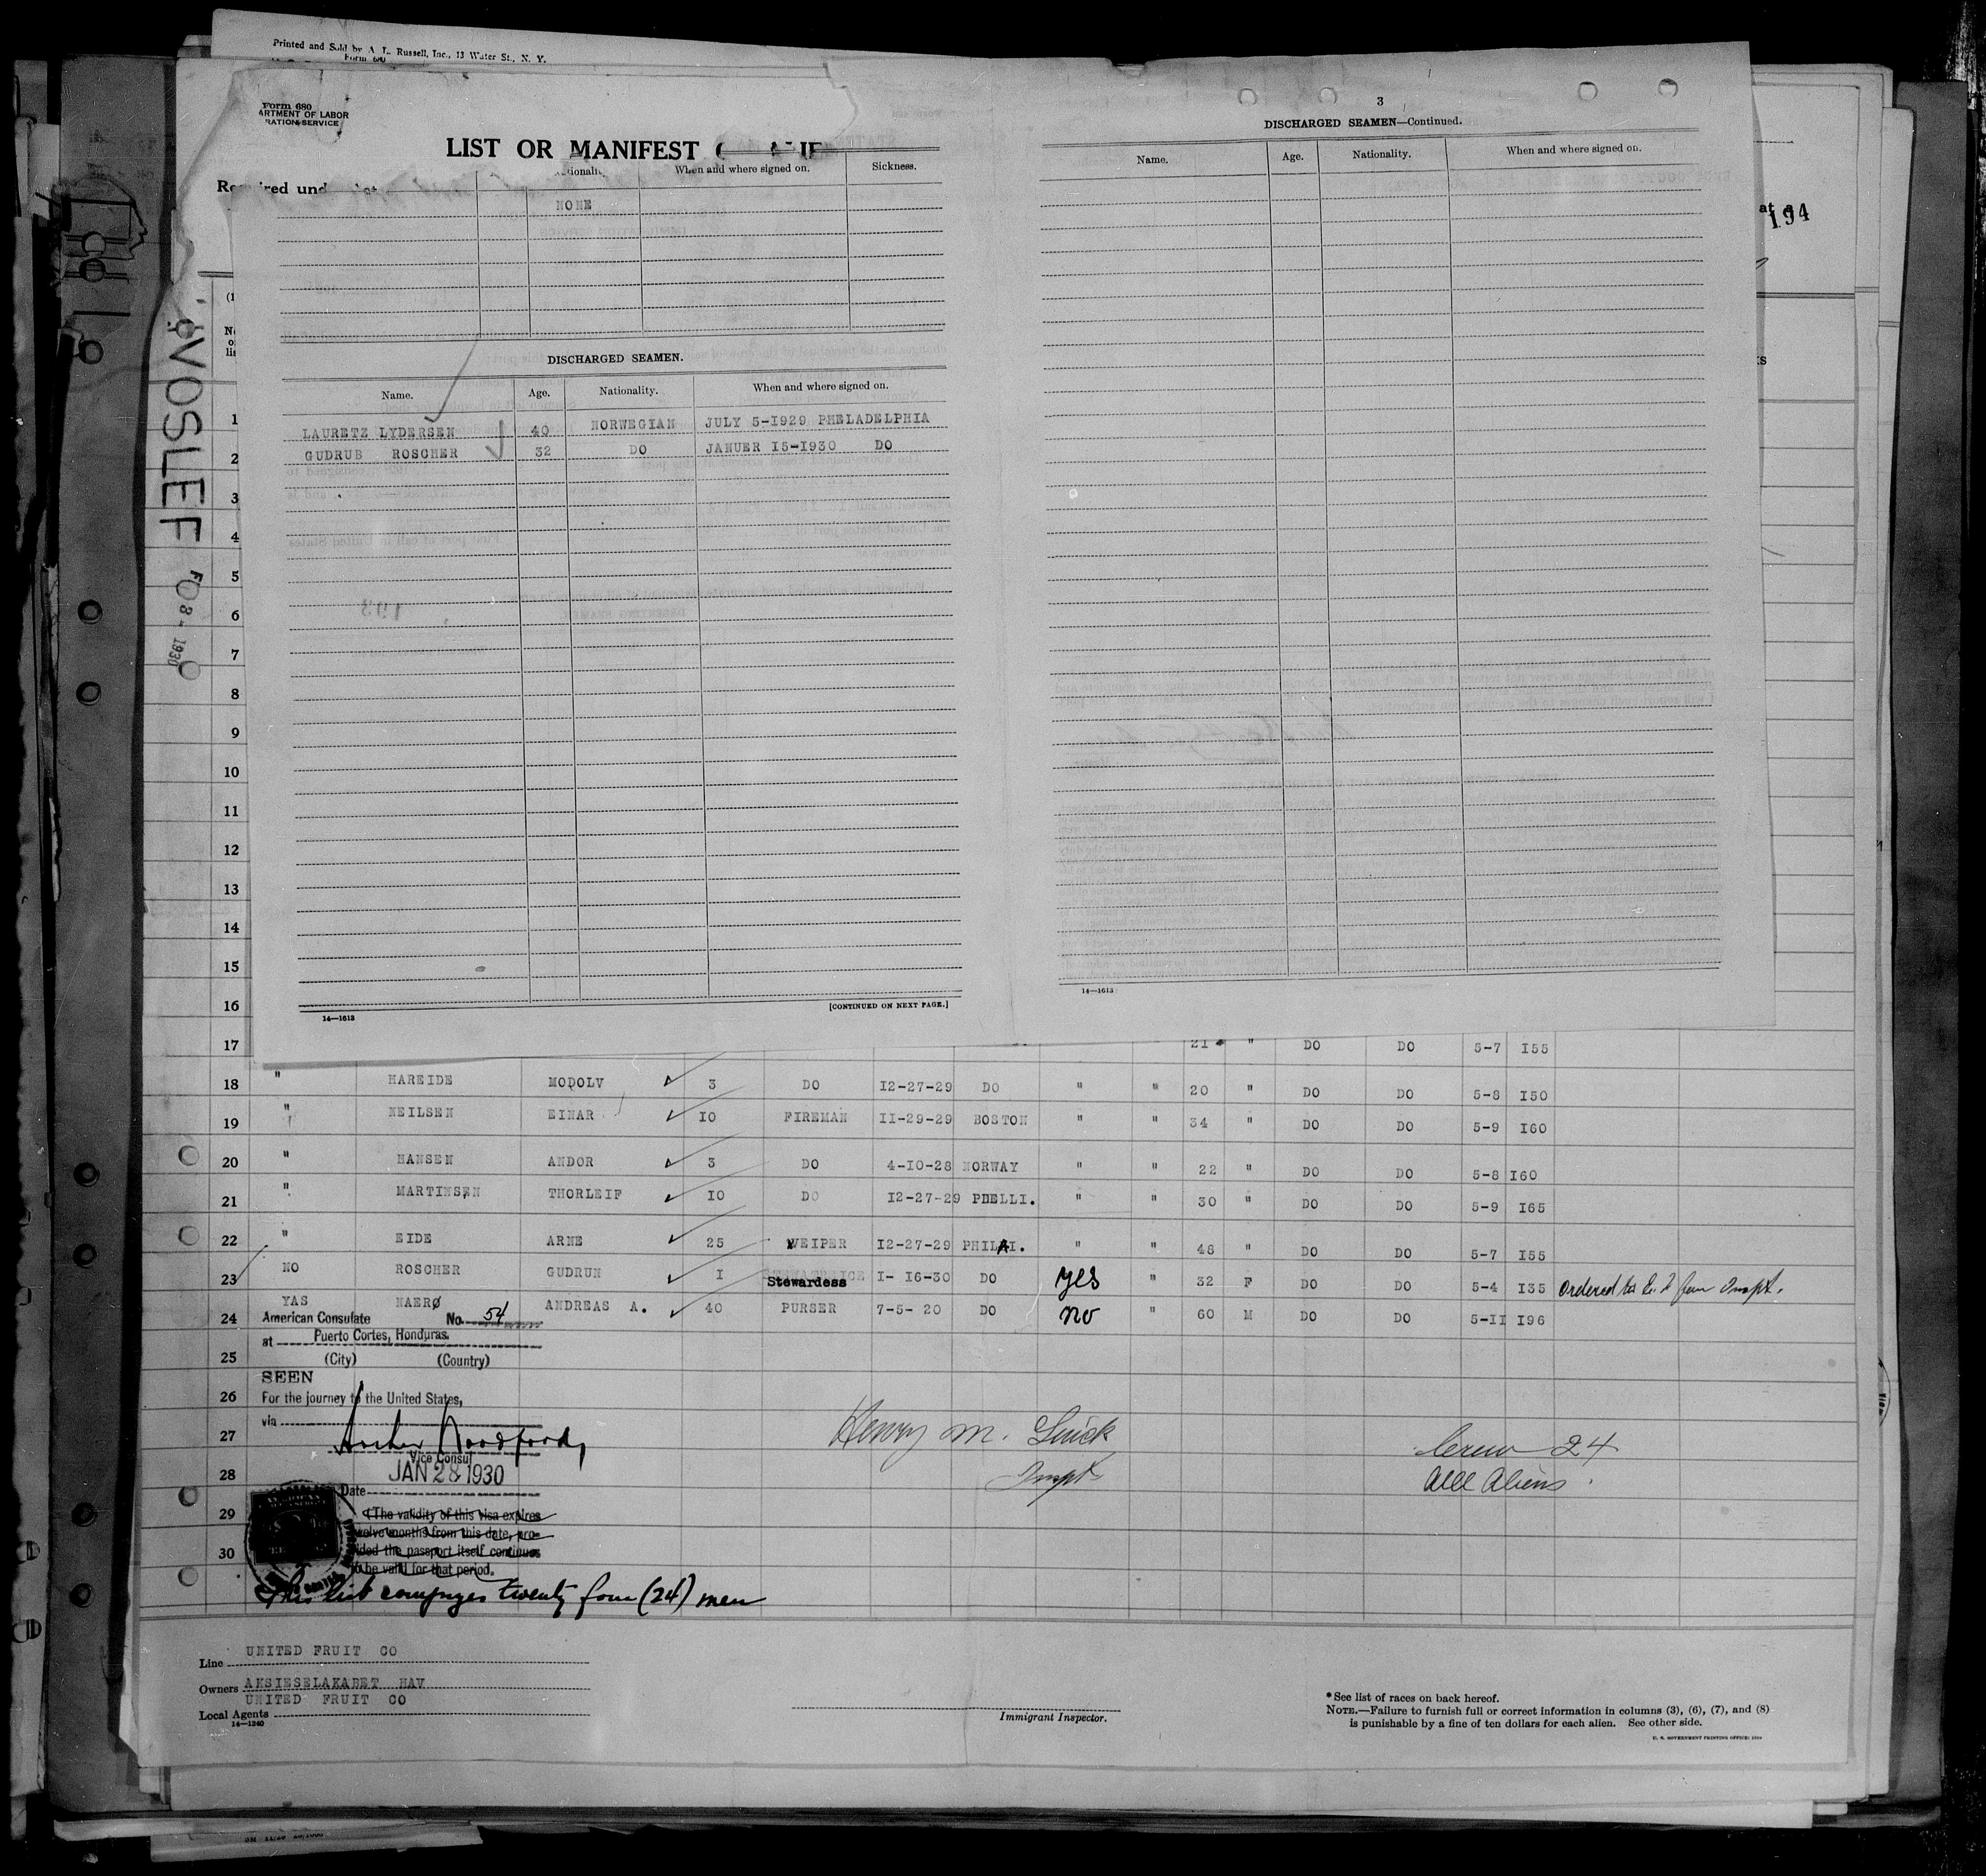 Printed and Sold by A. L. Russell, Inc., 13 Water St., N. Y.
Form 680
Form 680
ARTMENT OF LABOR
RATION SERVICE
LIST OR MANIFEST
When and where signed on.
Sickness.
NONE
DISCHARGED SEAMEN.
Name. Age. Nationality. When and where signed on.
LAURETZ LYDERSEN 40 NORWEGIAN JULY 5-I929 PHELADELPHIA
GUDRUB ROSCHER 32 DO JANUER I5-I930 DO
[CONTINUED ON NEXT PAGE.]
14—1613
3
DISCHARGED SEAMEN—Continued.
Name. Age. Nationality. When and where signed on.
14—1613
194
1
2
3
4
5
6
7
8
9
10
11
12
13
14
15
16
17 21 " DO DO 5-7 I55
18 " HAREIDE MODOLV 3 DO I2-27-29 DO " " 20 " DO DO 5-8 I50
19 " NEILSEN EINAR IO FIREMAN II-29-29 BOSTON " " 34 " DO DO 5-9 I60
20 " HANSEN ANDOR 3 DO 4-IO-28 NORWAY " " 22 " DO DO 5-8 I60
21 " MARTINSEN THORLEIF IO DO I2-27-29 PHELLI. " " 30 " DO DO 5-9 I65
22 " EIDE ARNE 25 WEIPER I2-27-29 PHILAI. " " 48 " DO DO 5-7 I55
23 NO ROSCHER GUDRUN I Stewardess I- I6-30 DO yes " 32 F DO DO 5-4 I35 Ordered
24 YAS NAERØ ANDREAS A. 40 PURSER 7-5- 20 DO no " 60 M DO DO 5-II I96
25
26
27
28
29
30
American Consulate No. 54
at Puerto Cortes, Honduras.
(City) (Country)
SEEN
For the journey to the United States,
via
Vice Consul
JAN 28 1930
Date
(The validity of this visa expires
twelve months from this date, pro-
vided the passport itself continues
to be valid for that period.
This list comprises twenty four (24) men
Henry M.
Inspt
Crew 24
All Aliens
Line UNITED FRUIT CO
Owners AKSIESELAKABET HAV
UNITED FRUIT CO
Local Agents
14—1240
Immigrant Inspector.
* See list of races on back hereof.
NOTE.—Failure to furnish full or correct information in columns (3), (6), (7), and (8)
is punishable by a fine of ten dollars for each alien. See other side.
U. S. GOVERNMENT PRINTING OFFICE:
GVOSLEF
8 - 1930